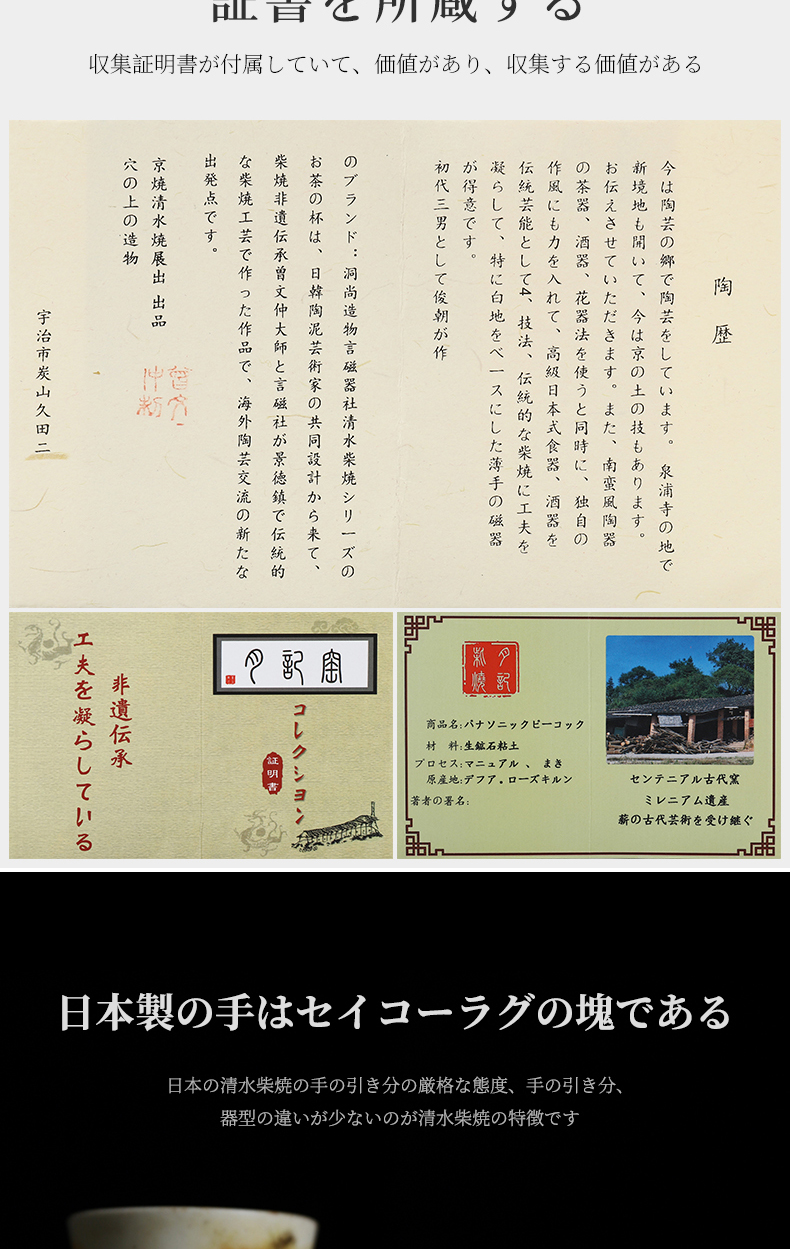 証書を所蔵する
収集証明書が付属していて、価値があり、収集する価値がある
陶歴
今は陶芸の郷で陶芸をしています。 泉浦寺の地で
新境地も開いて、今は京の土の技もあります。
お伝えさせていただきます。また、南蛮風陶器
の茶器、酒器、花器法を使うと同時に、独自の
作風にも力を入れて、高級日本式食器、酒器を
伝統芸能として4、技法、伝統的な柴焼に工夫を
凝らして、特に白地をベースにした薄手の磁器
が得意です。
初代三男として俊朝が作
のブランド：洞尚造物言磁器社清水柴焼シリーズの
お茶の杯は、日韓陶泥芸術家の共同設計から来て、
柴焼非遺伝承曽文仲大師と言磁社が景徳鎮で伝統的
な柴焼工芸で作った作品で、海外陶芸交流の新たな
出発点です。
京焼清水焼展出 出品
穴の上の造物
宇治市炭山久田二
非遺伝承
工夫を凝らしている
コレクション
証明書
商品名:パナソニックピーコック
材 料:生鉱石粘土
プロセス:マニュアル 、 まき
原産地:デフア。ローズキルン
著者の署名:
センテニアル古代窯
ミレニアム遺産
薪の古代芸術を受け継ぐ
日本製の手はセイコーラグの塊である
日本の清水柴焼の手の引き分の厳格な態度、手の引き分、
器型の違いが少ないのが清水柴焼の特徴です